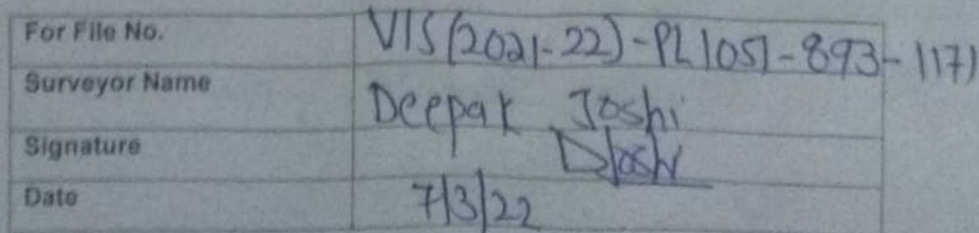 For File No. VIS(2021-22)-PL1051-893-1171
Surveyor Name Deepak Joshi
Signature DJoshi
Date 7/3/22